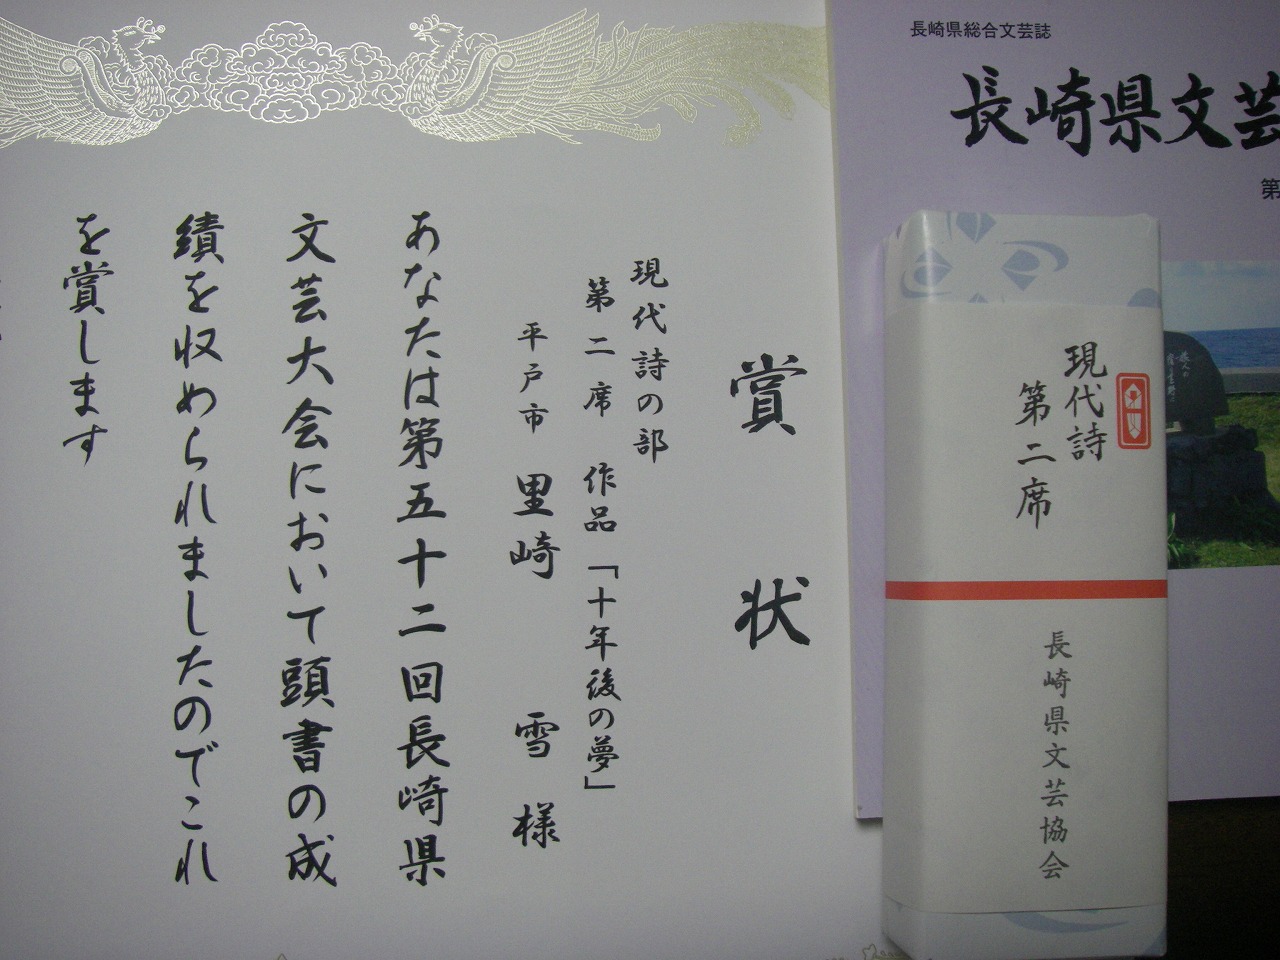 賞状
現代詩の部
第二席 作品「十年後の夢」
平戸市 里崎 雪様
あなたは第五十二回長崎県
文芸大会において頭書の成
績を収められましたのでこれ
を賞します
長崎県総合文芸誌
長崎県文芸
第
現代詩
第二席
長崎県文芸協会